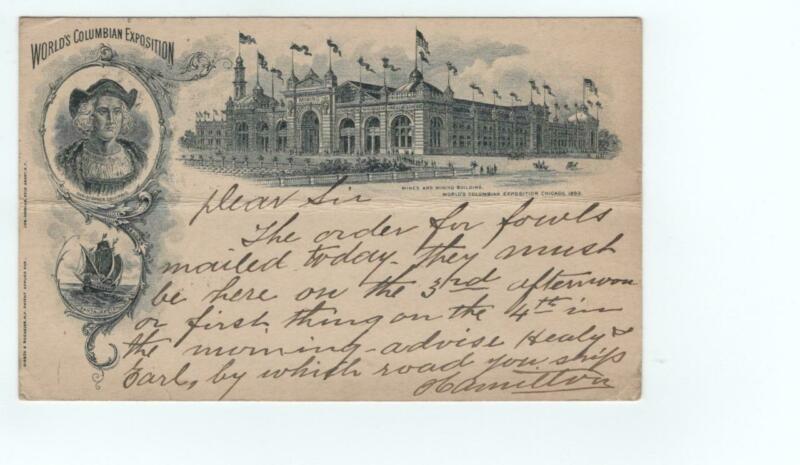 WORLD'S COLUMBIAN EXPOSITION
MINES AND MINING BUILDING,
WORLD'S COLUMBIAN EXPOSITION CHICAGO, 1893.
Dear Sir
The order for fowls
mailed today - they must
be here on the 3rd afternoon
or first thing on the 4th in
the morning - advise Healy &
Earl, by which road you ship
Hamilton